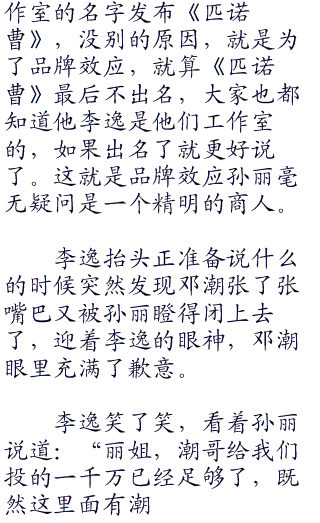 作室的名字发布《匹诺
曹》，没别的原因，就是为
了品牌效应，就算《匹诺
曹》最后不出名，大家也都
知道他李逸是他们工作室
的，如果出名了就更好说
了。这就是品牌效应孙丽毫
无疑问是一个精明的商人。
李逸抬头正准备说什么
的时候突然发现邓潮张了张
嘴巴又被孙丽瞪得闭上去
了，迎着李逸的眼神，邓潮
眼里充满了歉意。
李逸笑了笑，看着孙丽
说道：“丽姐，潮哥给我们
投的一千万已经足够了，既
然这里面有潮